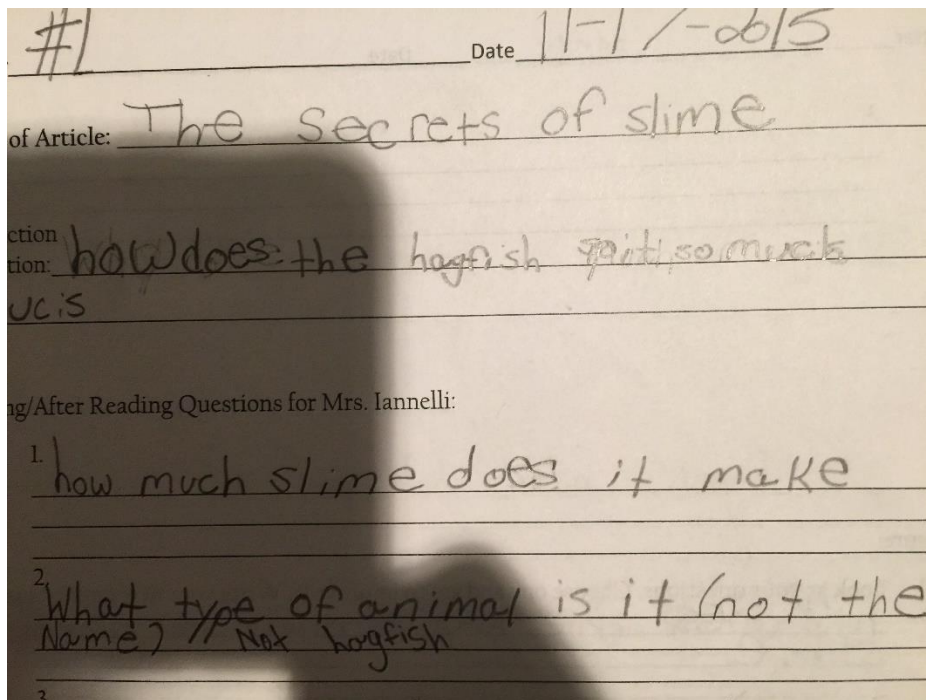 #1 Date 11-17-2015
of Article: The Secrets of slime
ction
tion: how does the hagfish spit so much
ucis
ng/After Reading Questions for Mrs. Iannelli:
1. how much slime does it make
2. What type of animal is it (not the
Name) // Not hagfish
3